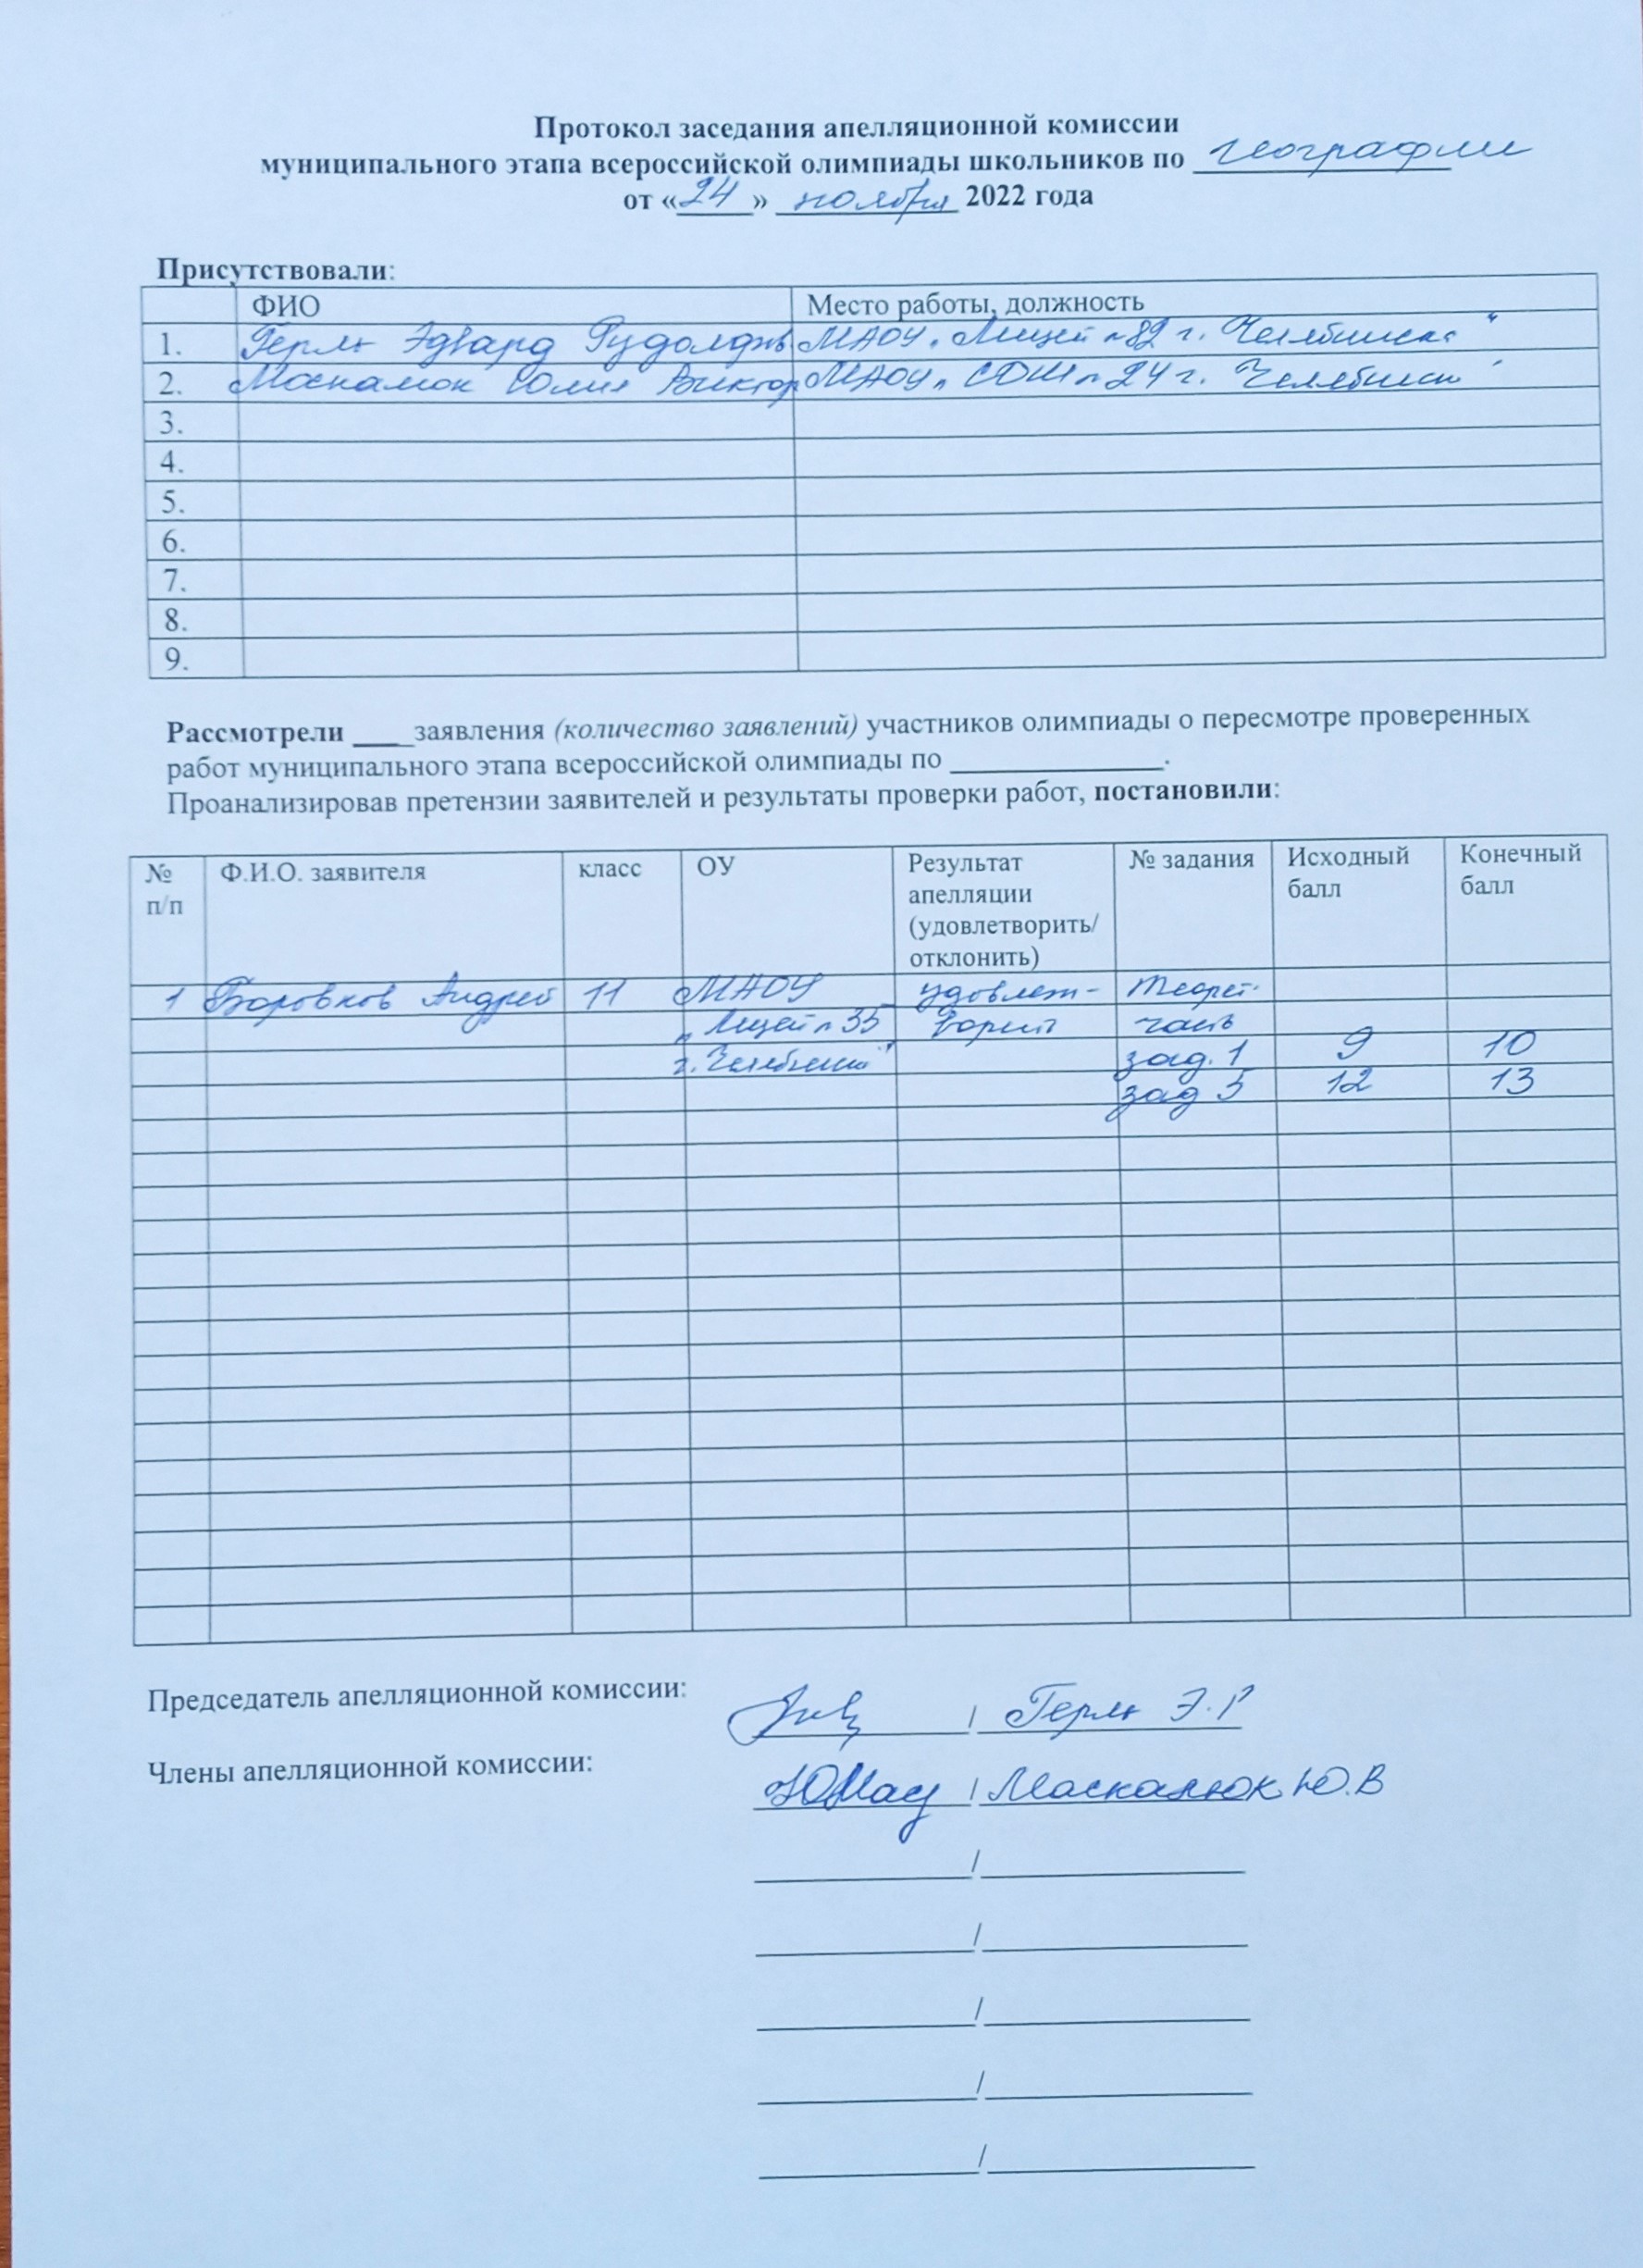 Протокол заседания апелляционной комиссии
муниципального этапа всероссийской олимпиады школьников по географии
от «24» ноября 2022 года
Присутствовали:
ФИО Место работы, должность
1. Герль Эдвард МАОУ "Лицей №82 г. Челябинска"
2. Москалюк Юлия Виктор МАОУ "СОШ №24 г. Челябинска"
3.
4.
5.
6.
7.
8.
9.
Рассмотрели ____заявления (количество заявлений) участников олимпиады о пересмотре проверенных
работ муниципального этапа всероссийской олимпиады по _______________.
Проанализировав претензии заявителей и результаты проверки работ, постановили:
№ п/п Ф.И.О. заявителя класс ОУ Результат апелляции (удовлетворить/ отклонить) № задания Исходный балл Конечный балл
1 Боровков Андрей 11 МАОУ удовлет- Теорет.
"Лицей №35 ворить часть
г. Челябинска" зад. 1 9 10
зад 5 12 13
Председатель апелляционной комиссии: / Герль Э.Р
Члены апелляционной комиссии: / Москалюк Ю.В
/
/
/
/
/